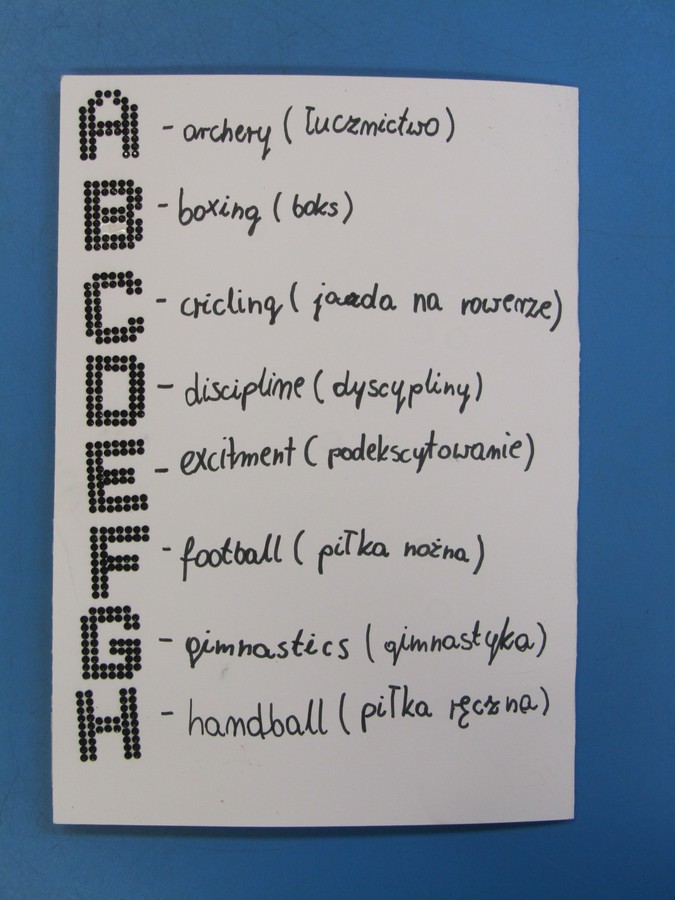 A - archery (łucznictwo)
B - boxing (boks)
C - cricling (jazda na rowerze)
D - discipline (dyscypliny)
E - excitment (podekscytowanie)
F - football (piłka nożna)
G - gimnastics (gimnastyka)
H - handball (piłka ręczna)